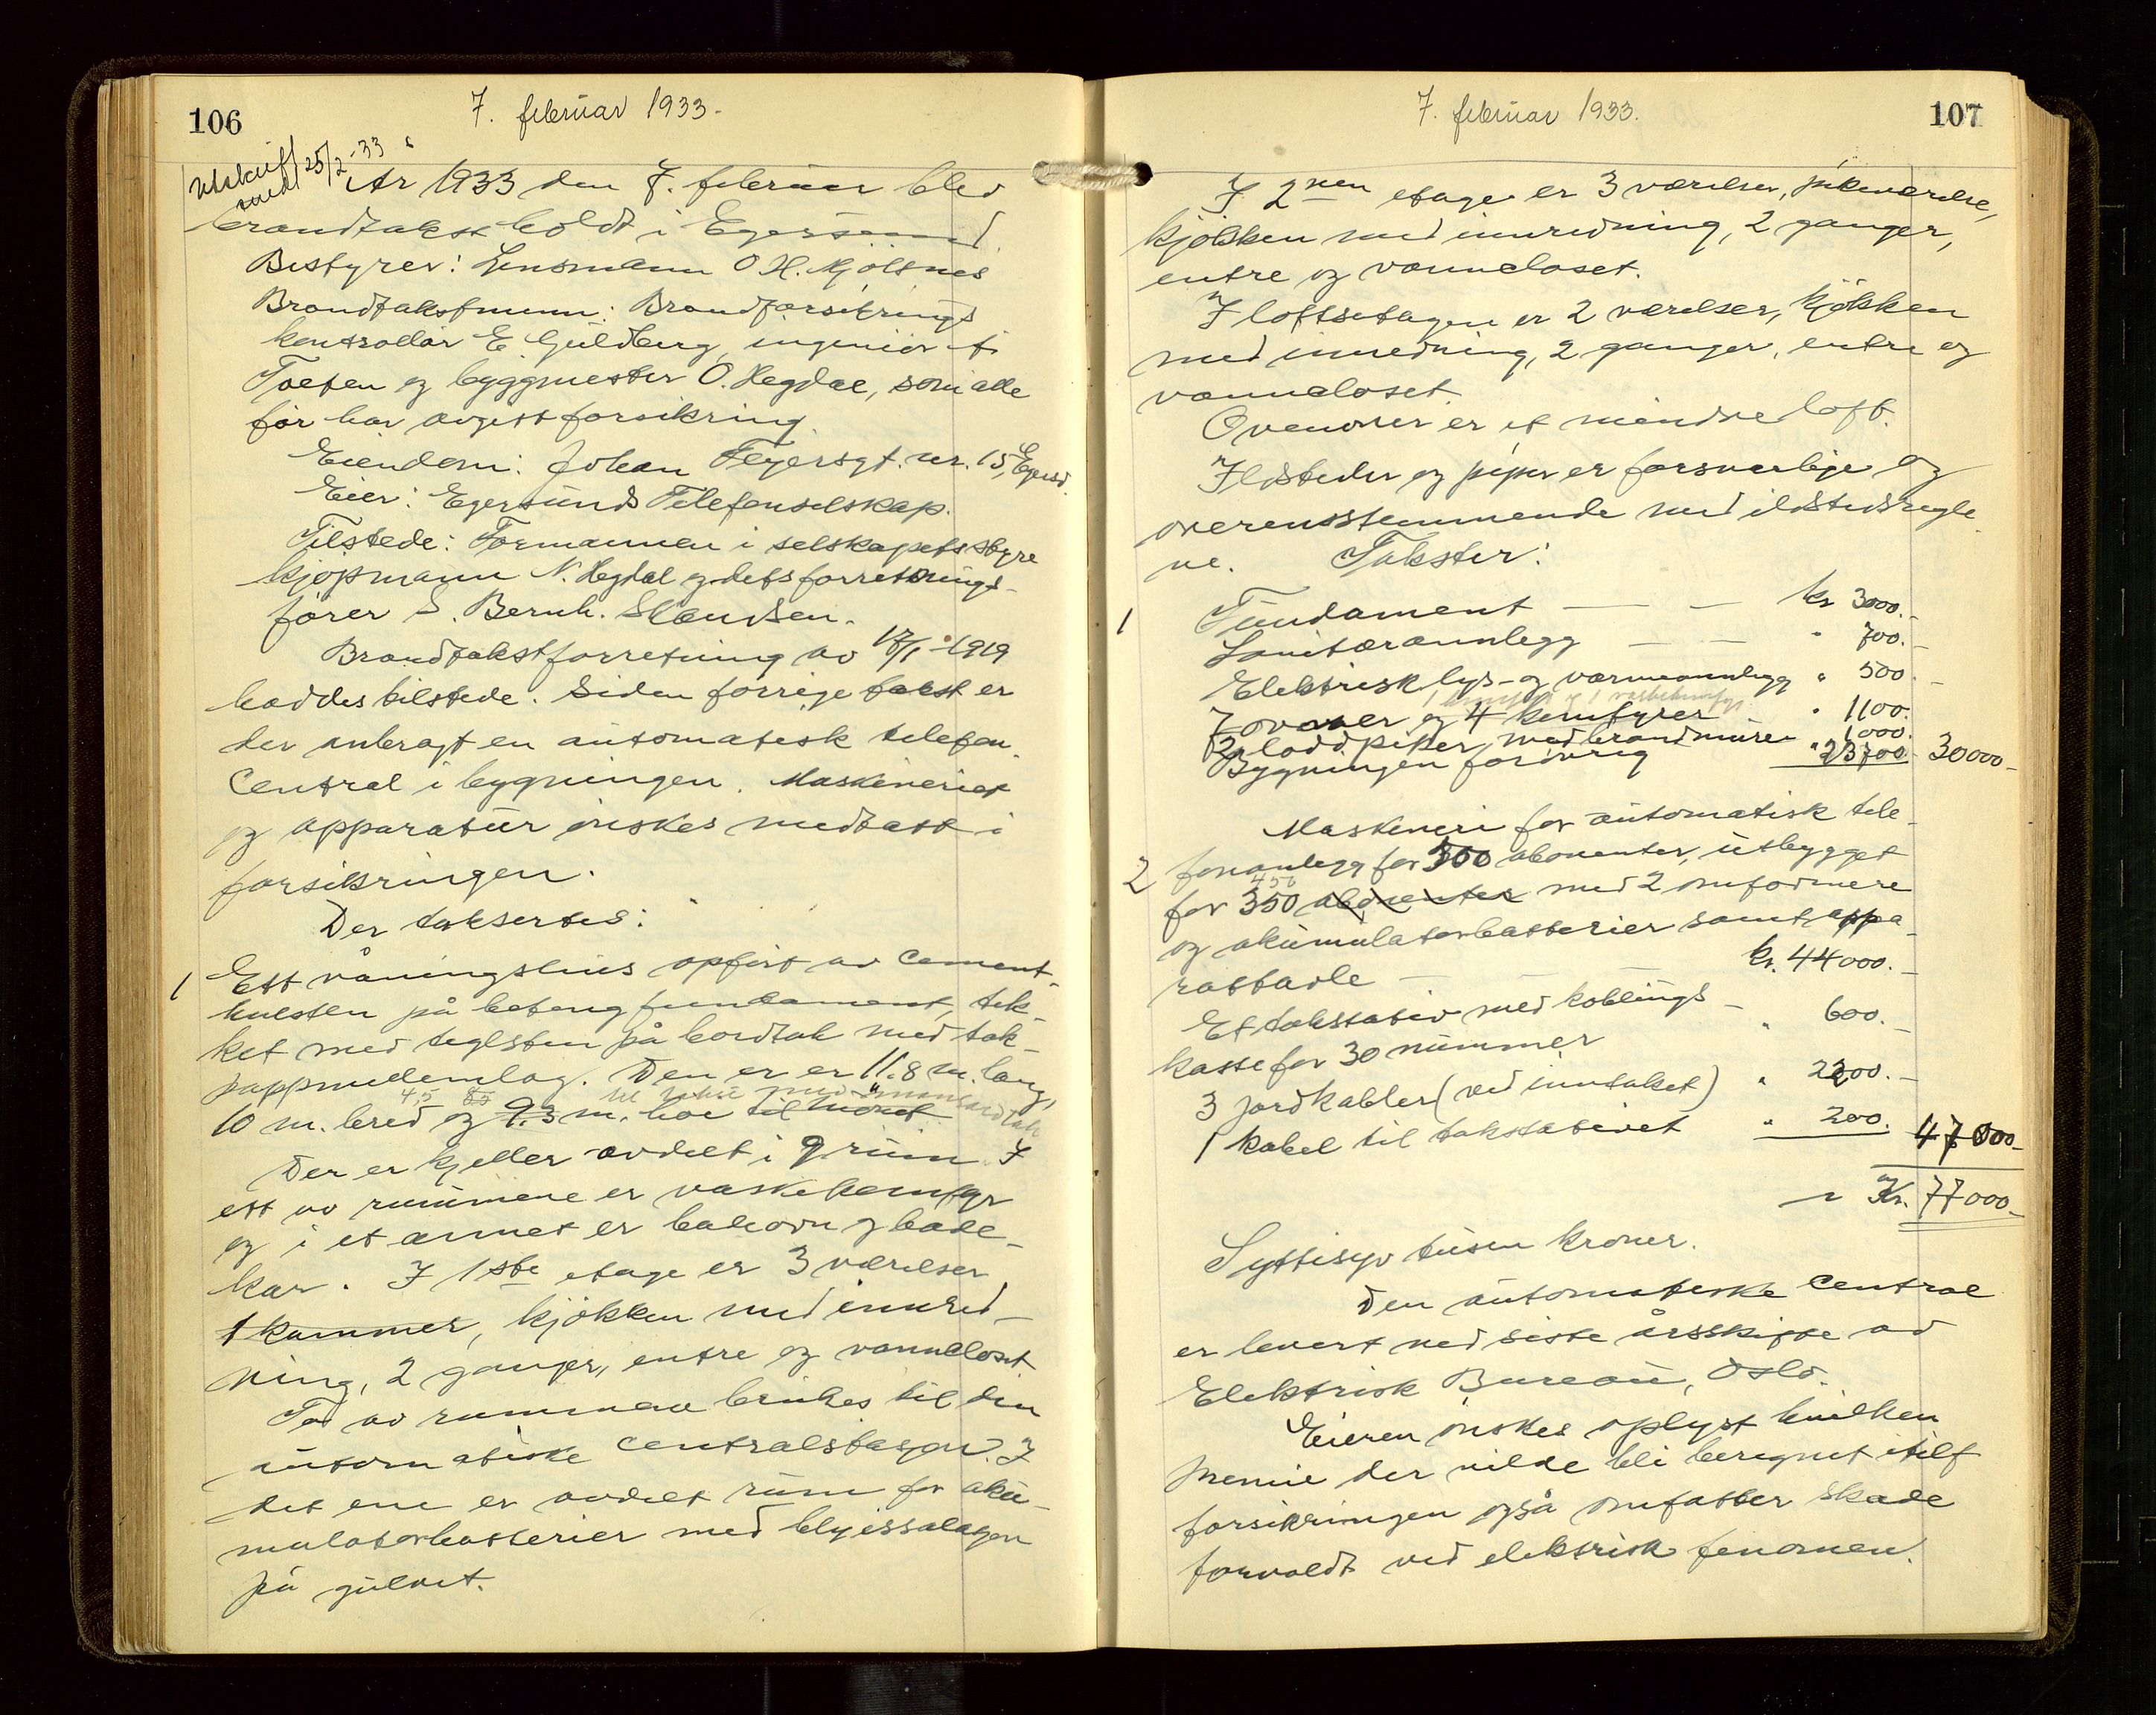 106
7. februar 1933.
Utskrift sendt 25/2-33
År 1933 den 7. februar blev
brandtakst holdt i Egersund.
Bestyrer: Lensmann O. H. Mjölsnes
Brandtakstmenn: Brandforsikrings
kontrollør E. Guldberg, ingeniør
Toften og byggmester O. Hegdal, som alle
før har avgitt forsikring.
Eiendom: Johan Feyersgt. nr. 15, Egersd.
Eier: Egersunds Telefonselskap.
Tilstede: Formannen i selskapets styre
kjøpmann N. Hegdal og dets forretnings-
fører S. Bernh. Svendsen.
Brandtakstforretning av 17/1-1919
haddes tilstede. Siden forrige takst er
der anbragt en automatisk telefon
Central i bygningen. Maskineriet
og apparatur ønskes medtatt i
forsikringen.
Der takseres:
1 Ett våningshus opført av cement-
hulsten på betongfundament, tek-
ket med teglsten på bordtak med tak-
pappunderlag. Den er er 11.8 m. lang,
4,5 8.5 til takse med mansardtak
10 m. bred og 9.3 m. høi til mönet
Der er kjeller avdelt i 9 rum. I
ett av rummene er vaskekomfyr
og i et annet er badeovn og bade-
kar. I 1ste etage er 3 værelser
1 kammer, kjøkken med innred-
ning, 2 ganger, entre og vanncloset
To av rummene brukes til den
automatiske centralstasjon. I
det ene er avdelt rum for aku-
mulatorbatterier med blyissolasjon
på gulvet.
107
7. februar 1933.
I 2nen etage er 3 værelser, pikeværelse,
kjøkken med innredning, 2 ganger,
entre og vanncloset.
I loftsetagen er 2 værelser, kjøkken
med innredning, 2 ganger, entre og
vanncloset.
Ovenover er et mindre loft.
Ildsteder og piper er forsvarlige og
overensstemmende med ildstedsregle
ne. Takster:
1 Fundament — — kr 3000.-
Sanitæranlegg — — " 700.-
Elektrisk lys- og varmeanlegg " 500.-
7 ovner og 4 komfyrer " 1100.
2 loddpiper med brandmure " 1000.
Bygningen forøvrig " 23700 30000-
Maskineri for automatisk tele-
2 fonanlegg for 500 abonenter, utbygget
450
for 350 abonenter med 2 omformere
og akumulatorbatterier samt appa-
rattavle — — kr. 44000.-
Et takstativ med koblings-
kasse for 30 nummer " 600.-
3 jordkabler (ved inntaket) " 2200.-
1 kabel til takstativet " 200. 47000-
Kr. 77000-
Syttisyv tusen kroner.
Den automatiske Central
er levert ved siste årsskifte av
Elektrisk Bureau, Oslo.
Eieren ønsker oplyst hvilken
premie der vilde bli beregnet itilf
forsikringen også omfatter skade
forvoldt ved elektrisk fenomen.